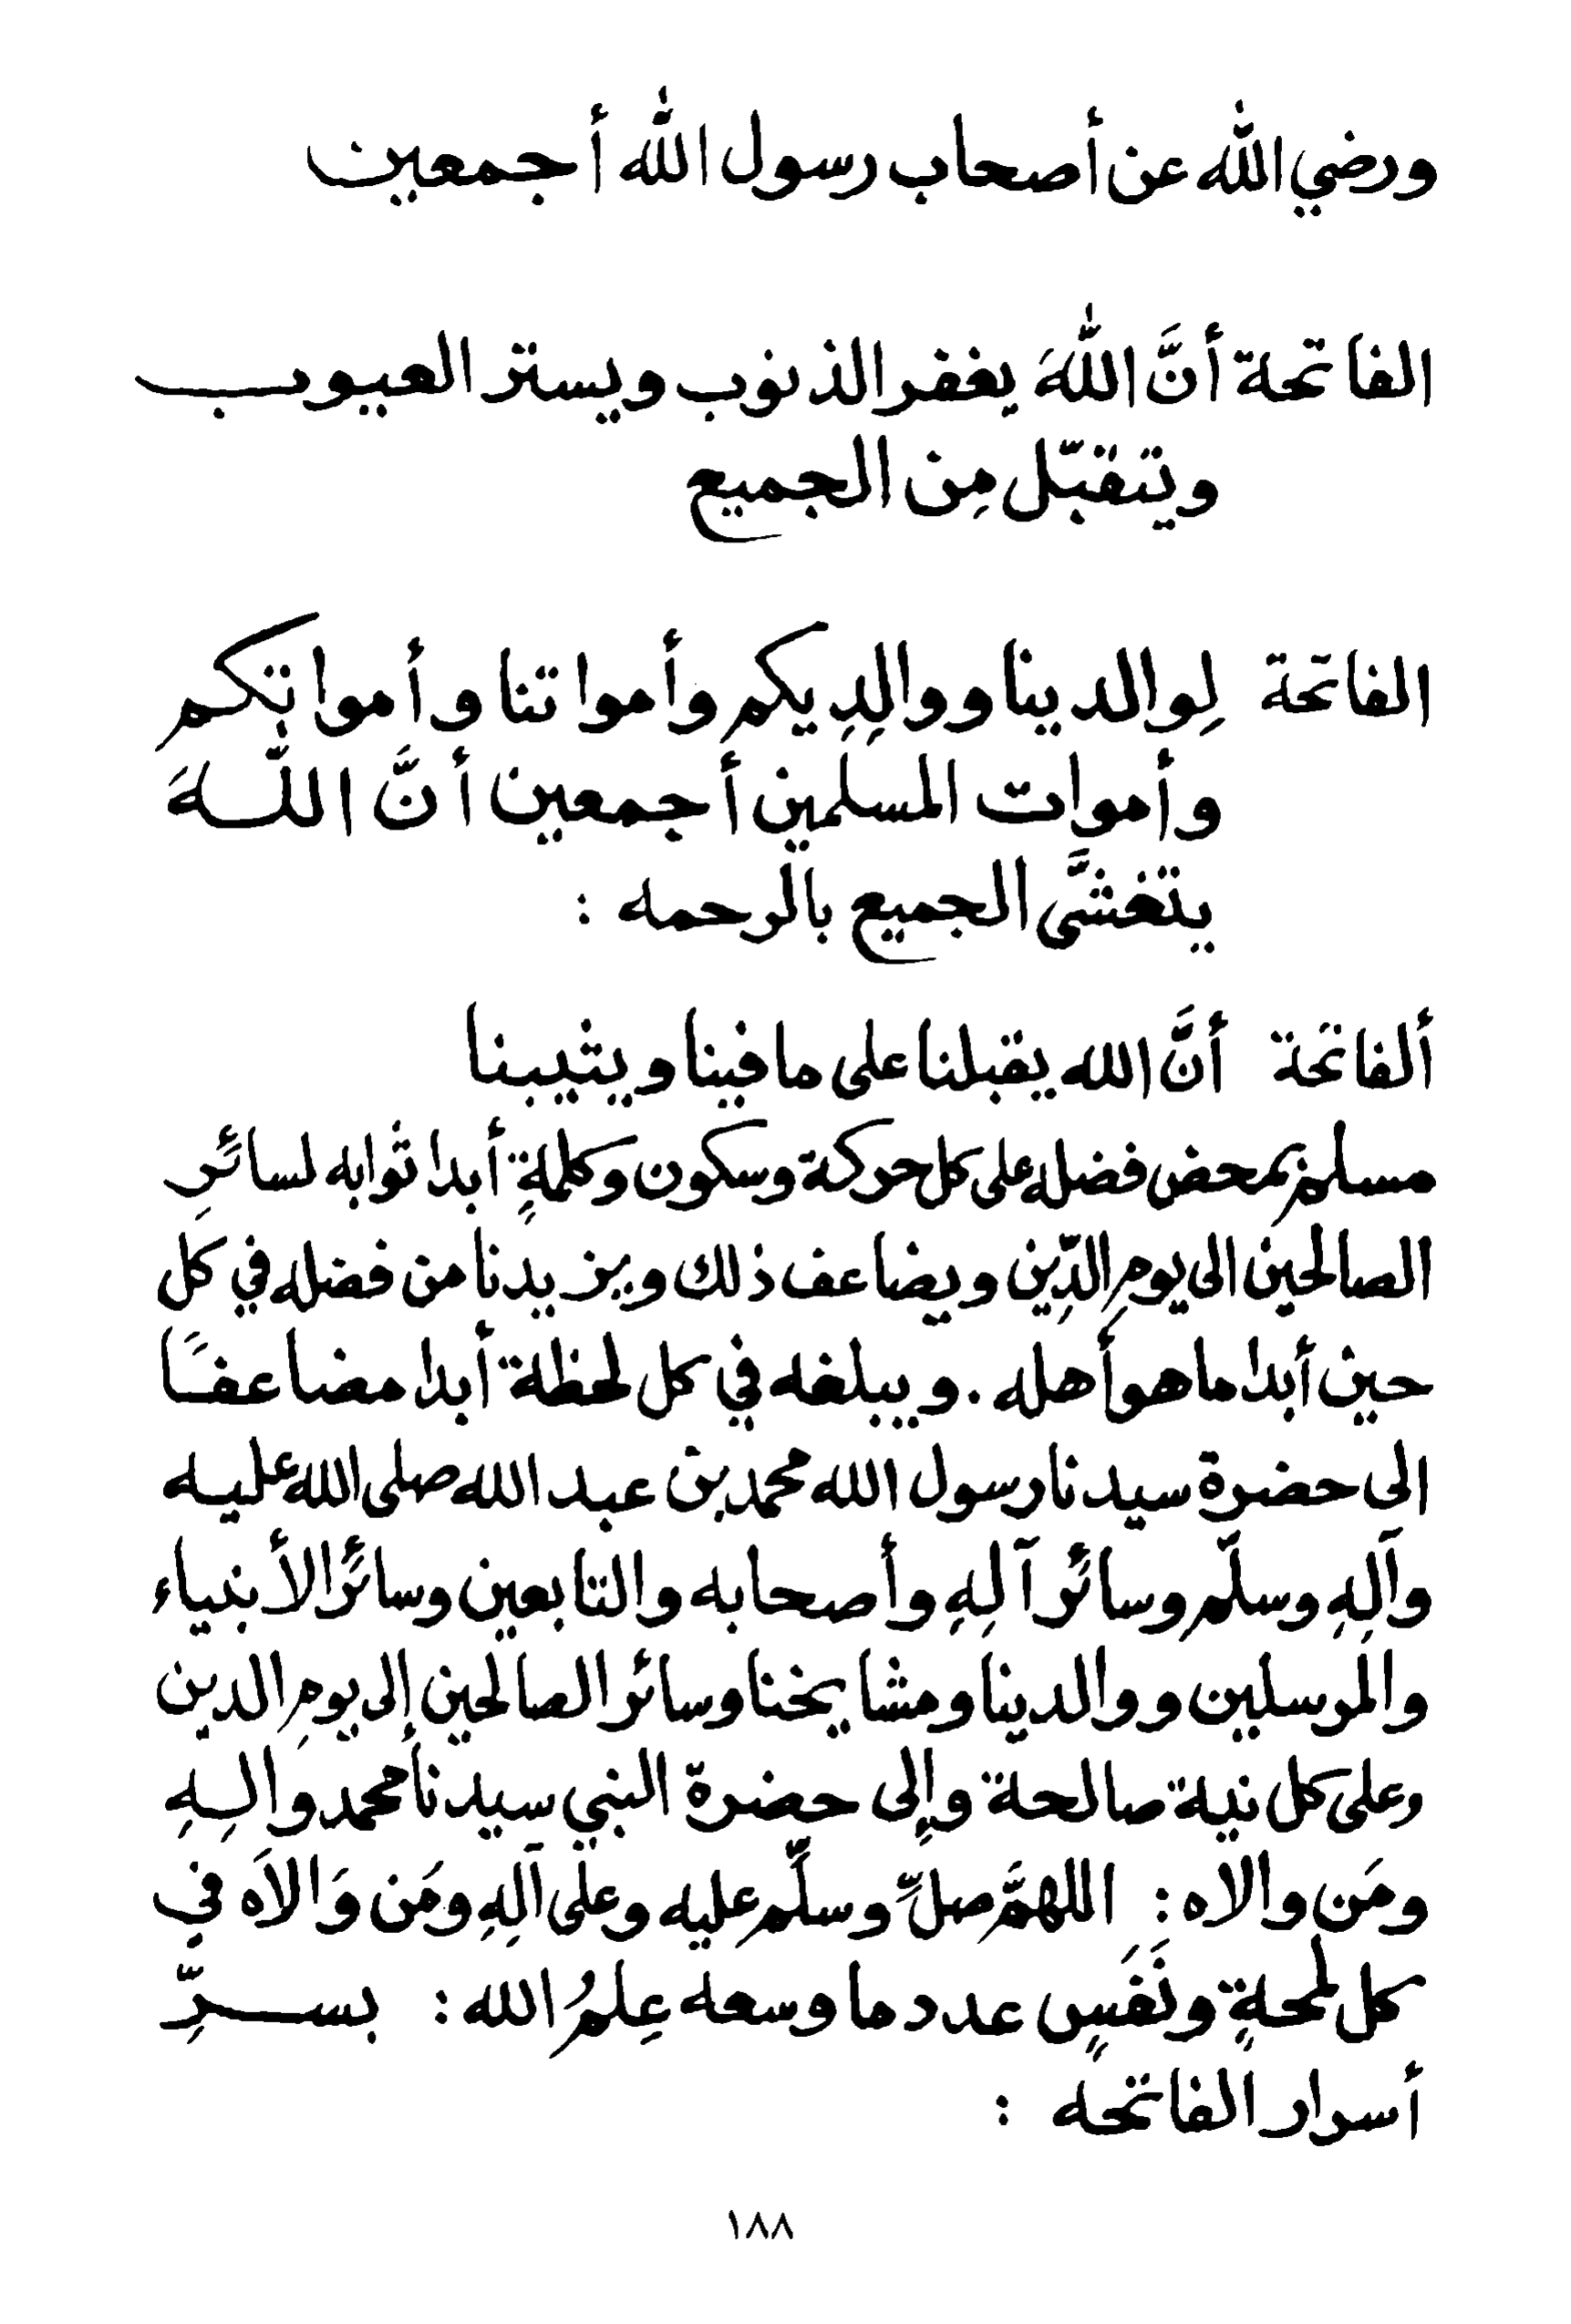 ورضي الله عن أصحاب رسول الله أجمعين
الفاتحة أنَّ اللهَ يغفر الذنوب ويستر العيوب
ويتقبّل مِن الجميع
الفاتحة لِوالدينا ووالِدِيكم وأمواتنا وأمواتكم
وأموات المسلمين أجمعين أنَّ اللّهَ
يتغشَّى الجميع بالرحمه :
ألفاتحة أنَّ الله يقبلنا على ما فينا ويثيبنا
بمحض فضله على كل حركة وسكون وكلمةٍ أبدا ثوابه لسائرِ
الصالحين الى يومِ الدِّين ويضاعف ذلك ويزيدنا من فضله في كل
حين أبدا ما هو أهله . ويبلغه في كل لحظة أبدا مضاعفًا
الى حضرة سيدنا رسول الله محمد بن عبد الله صلى الله عليه
وآلِهِ وسلّم وسائر آلِهِ وأصحابه والتابعين وسائر الأنبياء
والمرسلين ووالدينا ومشايخنا وسائر الصالحين إلى يومِ الدين
وعلى كل نية صالحة وإلى حضرة النبي سيدنا محمد وآلِهِ
ومَن والاه : اللهمَّ صلِّ وسلِّم عليه وعلى آلِهِ ومَن وَالاَه في
كل لمحةٍ ونَفَسٍ عدد ما وسعه عِلمُ الله : بسرِّ
أسرار الفاتحه :
١٨٨